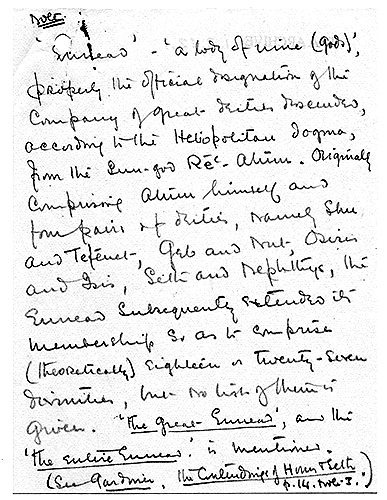 Note
'Ennead' - 'a body of nine (gods)',
properly the official designation of the
Company of great deities descended,
according to the Heliopolitan dogma,
from the Sun-god Rēʿ-Atum. Originally
Comprising Atum himself and
four pairs of deities, namely Shu
and Tefēnet, Geb and Nut, Osiris
and Isis, Seth and Nephthys, the
Ennead subsequently extended its
membership so as to comprise
(theoretically) Eighteen or Twenty-Seven
divinities, but no list of them is
given. 'The great Ennead', and the
'the entire Ennead' is mentioned.
(See Gardiner, The Contendings of Horus & Seth
p. 14. Note 3.)